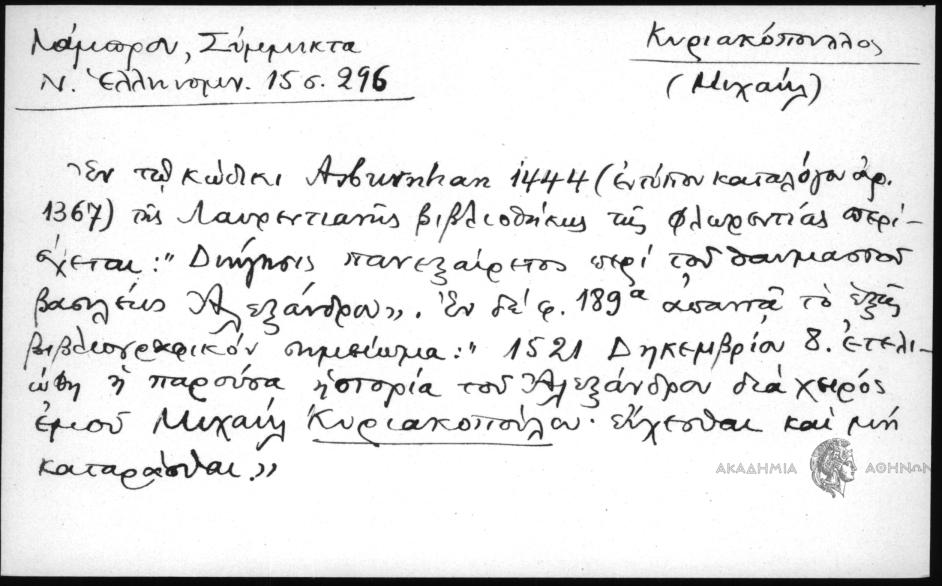 Λάμπρου, Σύμμικτα
Ν. Ἑλληνομν. 15 σ. 296
Κυριακόπουλλος
(Μιχαήλ)
Ἐν τῷ κώδικι Asburnhan 1444 (ἐντύπου καταλόγου ἀρ.
1367) τῆς Λαυρεντιανῆς βιβλιοθήκης τῆς Φλωρεντίας περι-
έχεται: "Διήγησις πανεξαίρετος περί τοῦ θαυμαστοῦ
βασιλέως Ἀλεξάνδρου». Ἐν δέ φ. 189α ἀπαντᾷ τὸ ἑξῆς
βιβλιογραφικόν σημείωμα: " 1521 Δηκεμβρίου 8. ἐτελι-
ώθη ἡ παροῦσα ἡστορία τοῦ Ἀλεξάνδρου διά χειρός
ἐμοῦ Μιχαήλ Κυριακοπούλου· εὔχεσθαι καί μή
καταρᾶσθαι.»
ΑΚΑΔΗΜΙΑ ΑΘΗΝΩΝ